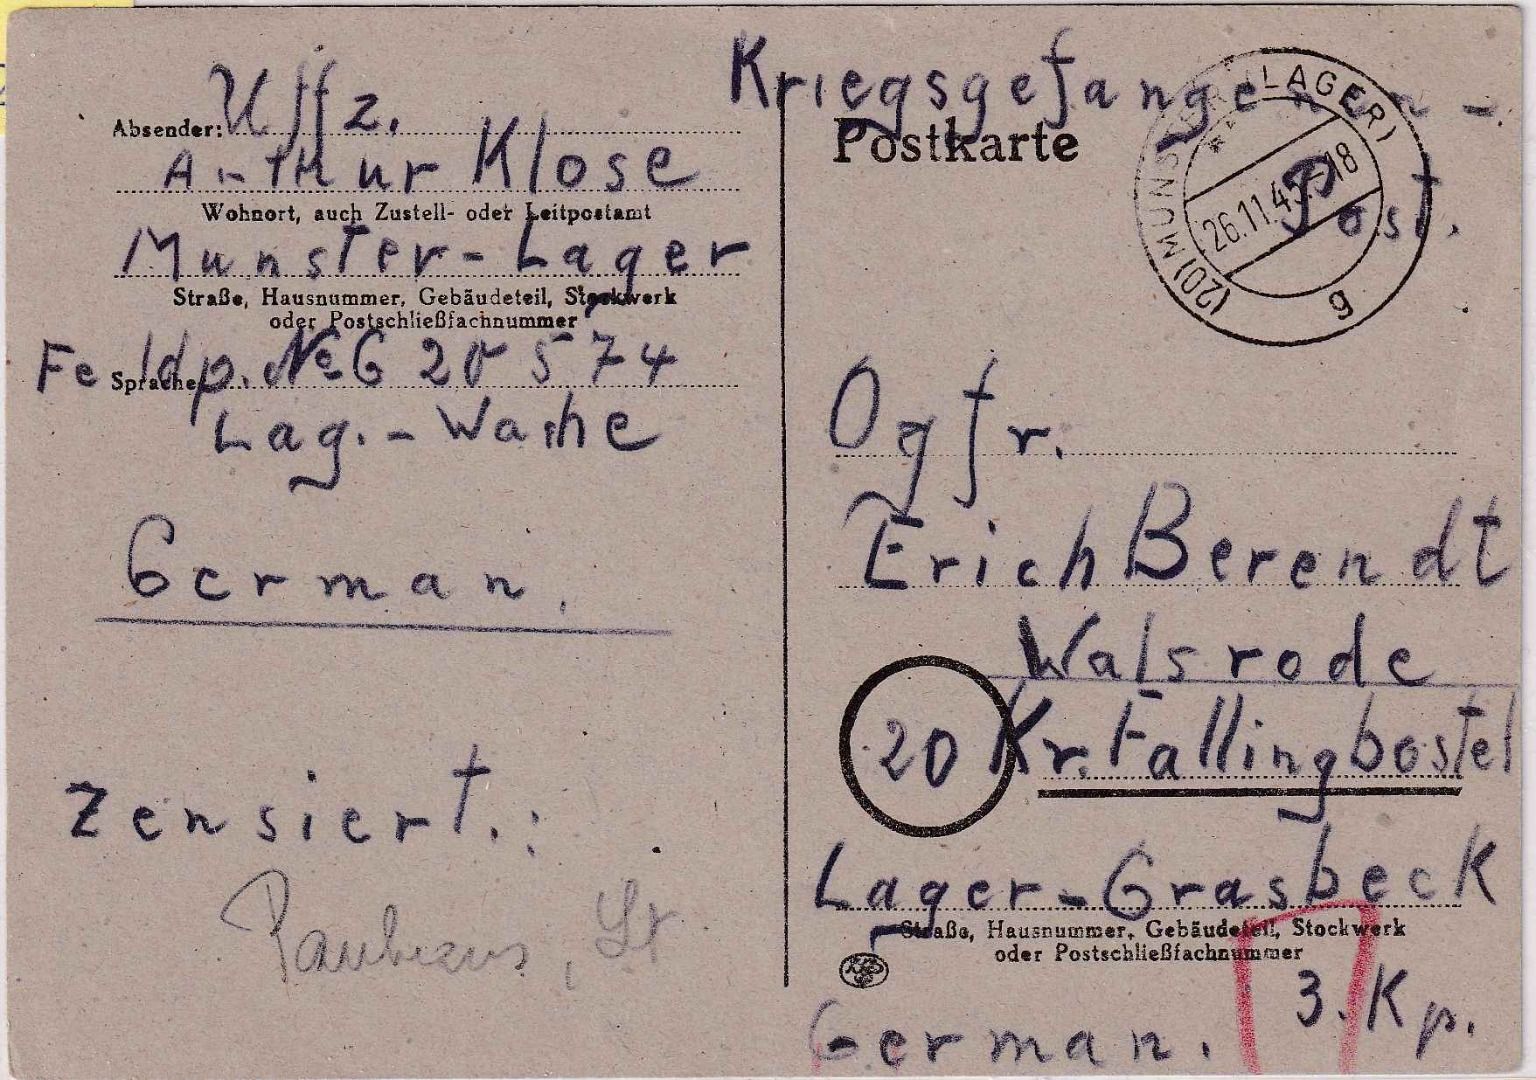 Absender: Uffz.
Arthur Klose
Wohnort, auch Zustell- oder Leitpostamt
Munster-Lager
Straße, Hausnummer, Gebäudeteil, Stockwerk
oder Postschließfachnummer
Feldp. No G 20574
Sprache
Lag.-Wache
German.
Zensiert.:
Lt
Kriegsgefangenen-
Postkarte
Post.
(20) MUNSTER (LAGER)
26.11.45.-18
g
Ogfr.
Erich Berendt
Walsrode
20 Kr. Fallingbostel
Lager-Grasbeck
Straße, Hausnummer, Gebäudeteil, Stockwerk
oder Postschließfachnummer
3. Kp.
German.